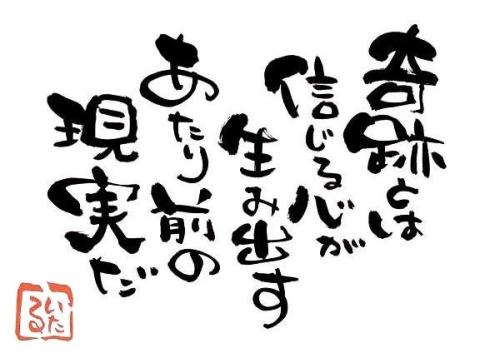 奇跡とは
信じる心が
生み出す
あたり前の
現実だ
いたる